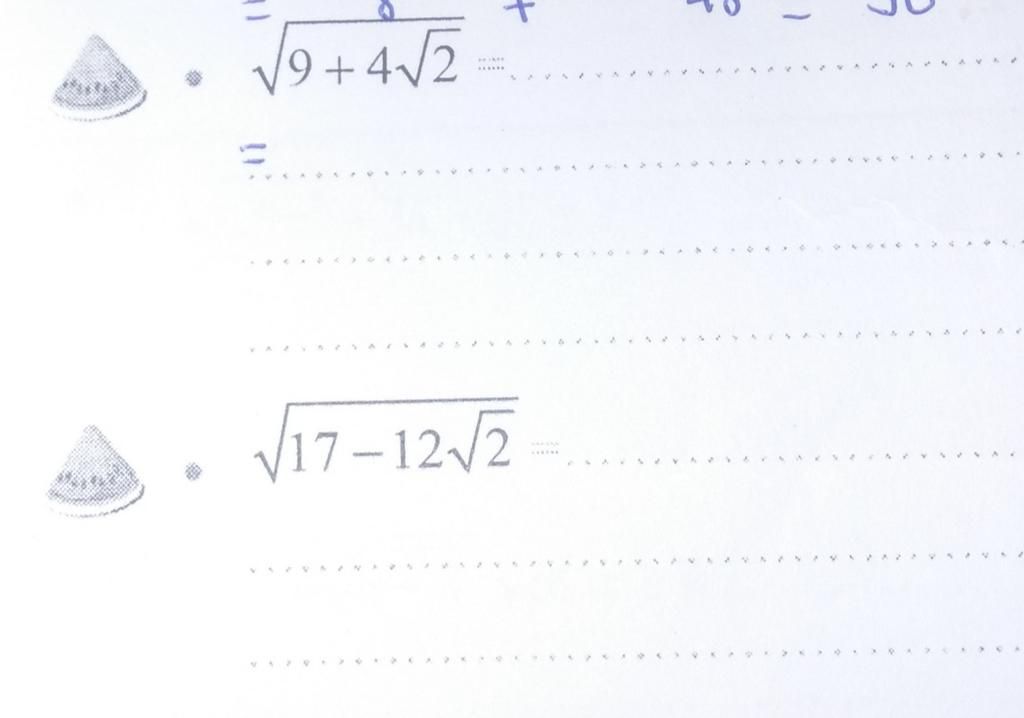 • √(9+4√2) =
=
• √(17−12√2) =